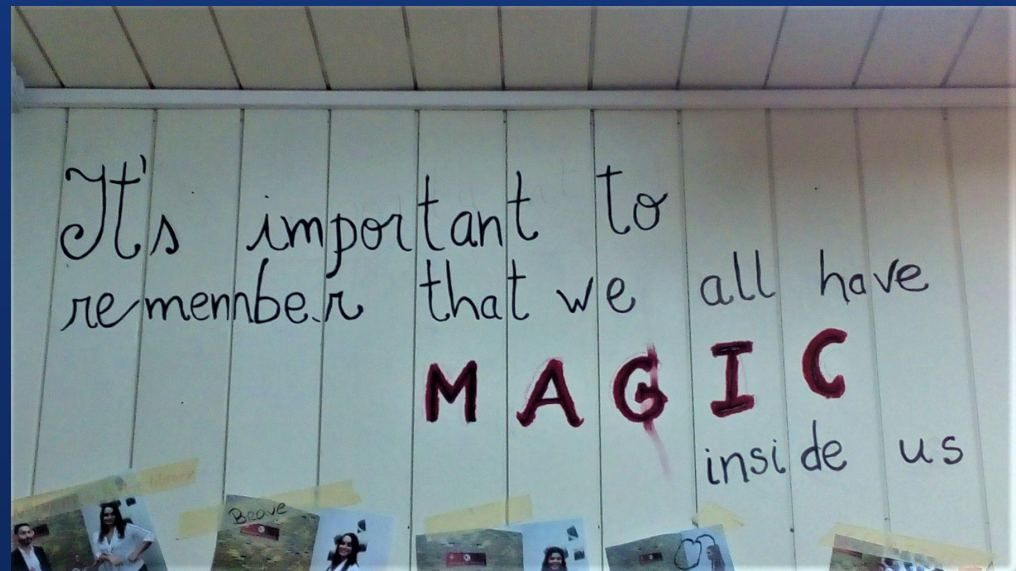 It's important to
remember that we all have
MAGIC
inside us
Brave